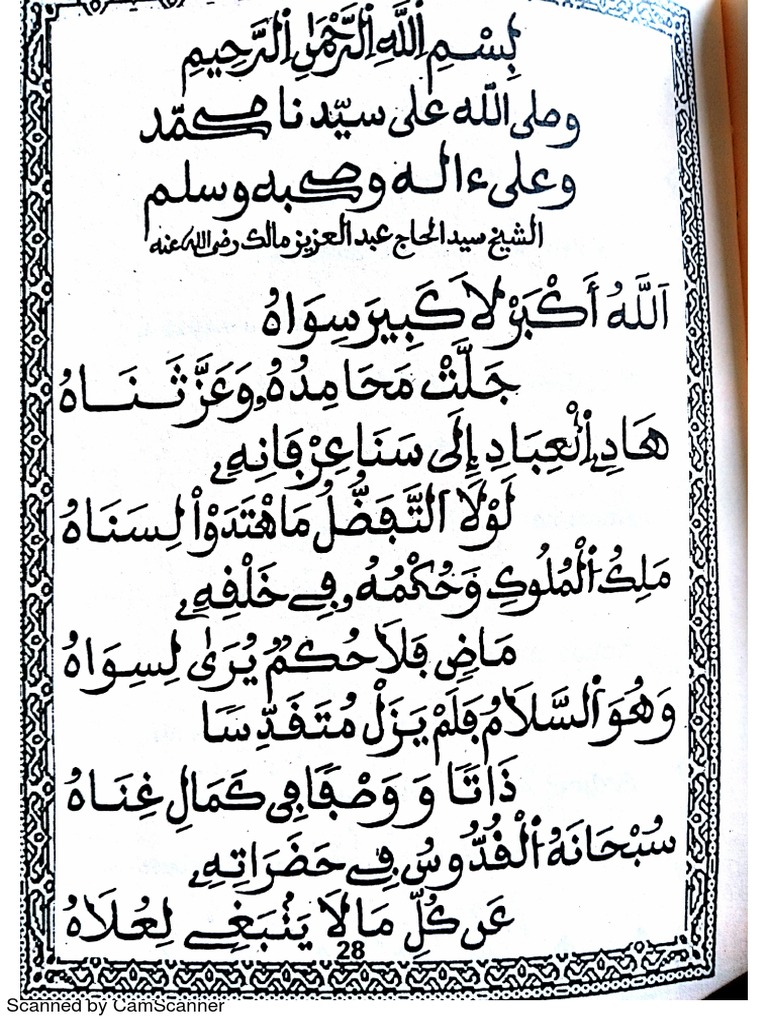 بِسْمِ اللَّهِ الرَّحْمَٰنِ الرَّحِيمِ
وصلى الله على سيّدنا محمّد
وعلى ءاله وصحبه وسلم
الشيخ سيد الحاج عبد العزيز مالك رضى الله عنه
اَللَّهُ أَكْبَرْ لاَ كَبِيرَ سِوَاهُ
جَلَّتْ مَحَامِدُهُ وَعَزَّ ثَنَاهُ
هَادِي اِلْعِبَادِ إِلَى سَنَا عِرْفَانِهِ
لَوْلاَ اَلتَّفَضُّلُ مَا هْتَدَوْاْ لِسَنَاهُ
مَلِكُ اُلْمُلُوكِ وَحُكْمُهُ فِي خَلْقِهِ
مَاضٍ فَلاَ حُكْمٌ يُرَىٰ لِسِوَاهُ
وَهُوَ اَلسَّلاَمُ فَلَمْ يَزَلْ مُتَقَدِّسًا
ذَاتًا وَ وَصْفًا فِي كَمَالِ غِنَاهُ
سُبْحَانَهُ اُلْقُدُّوسُ فِي حَضَرَاتِهِ
عَن كُلِّ مَا لاَ يَنْبَغِي لِعُلاَهُ
28
Scanned by CamScanner